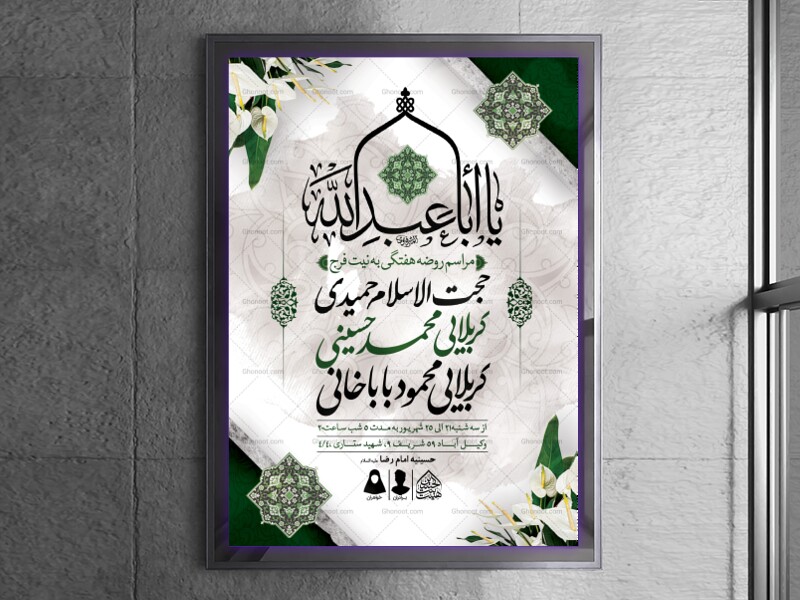 یا أبا عبدالله
مراسم روضه هفتگی به نیت فرج
حجت الاسلام حمیدی
کربلایی محمد حسینی
کربلایی محمود باباخانی
از سه شنبه ۲۱ الی ۲۵ شهریور به مدت ۵ شب ساعت ۲۰
وکیل آباد ۵۹ شریف ۹، شهید ستاری ۴/۴۰
حسینیه امام رضا
برادران خواهران
Ghonoot.com